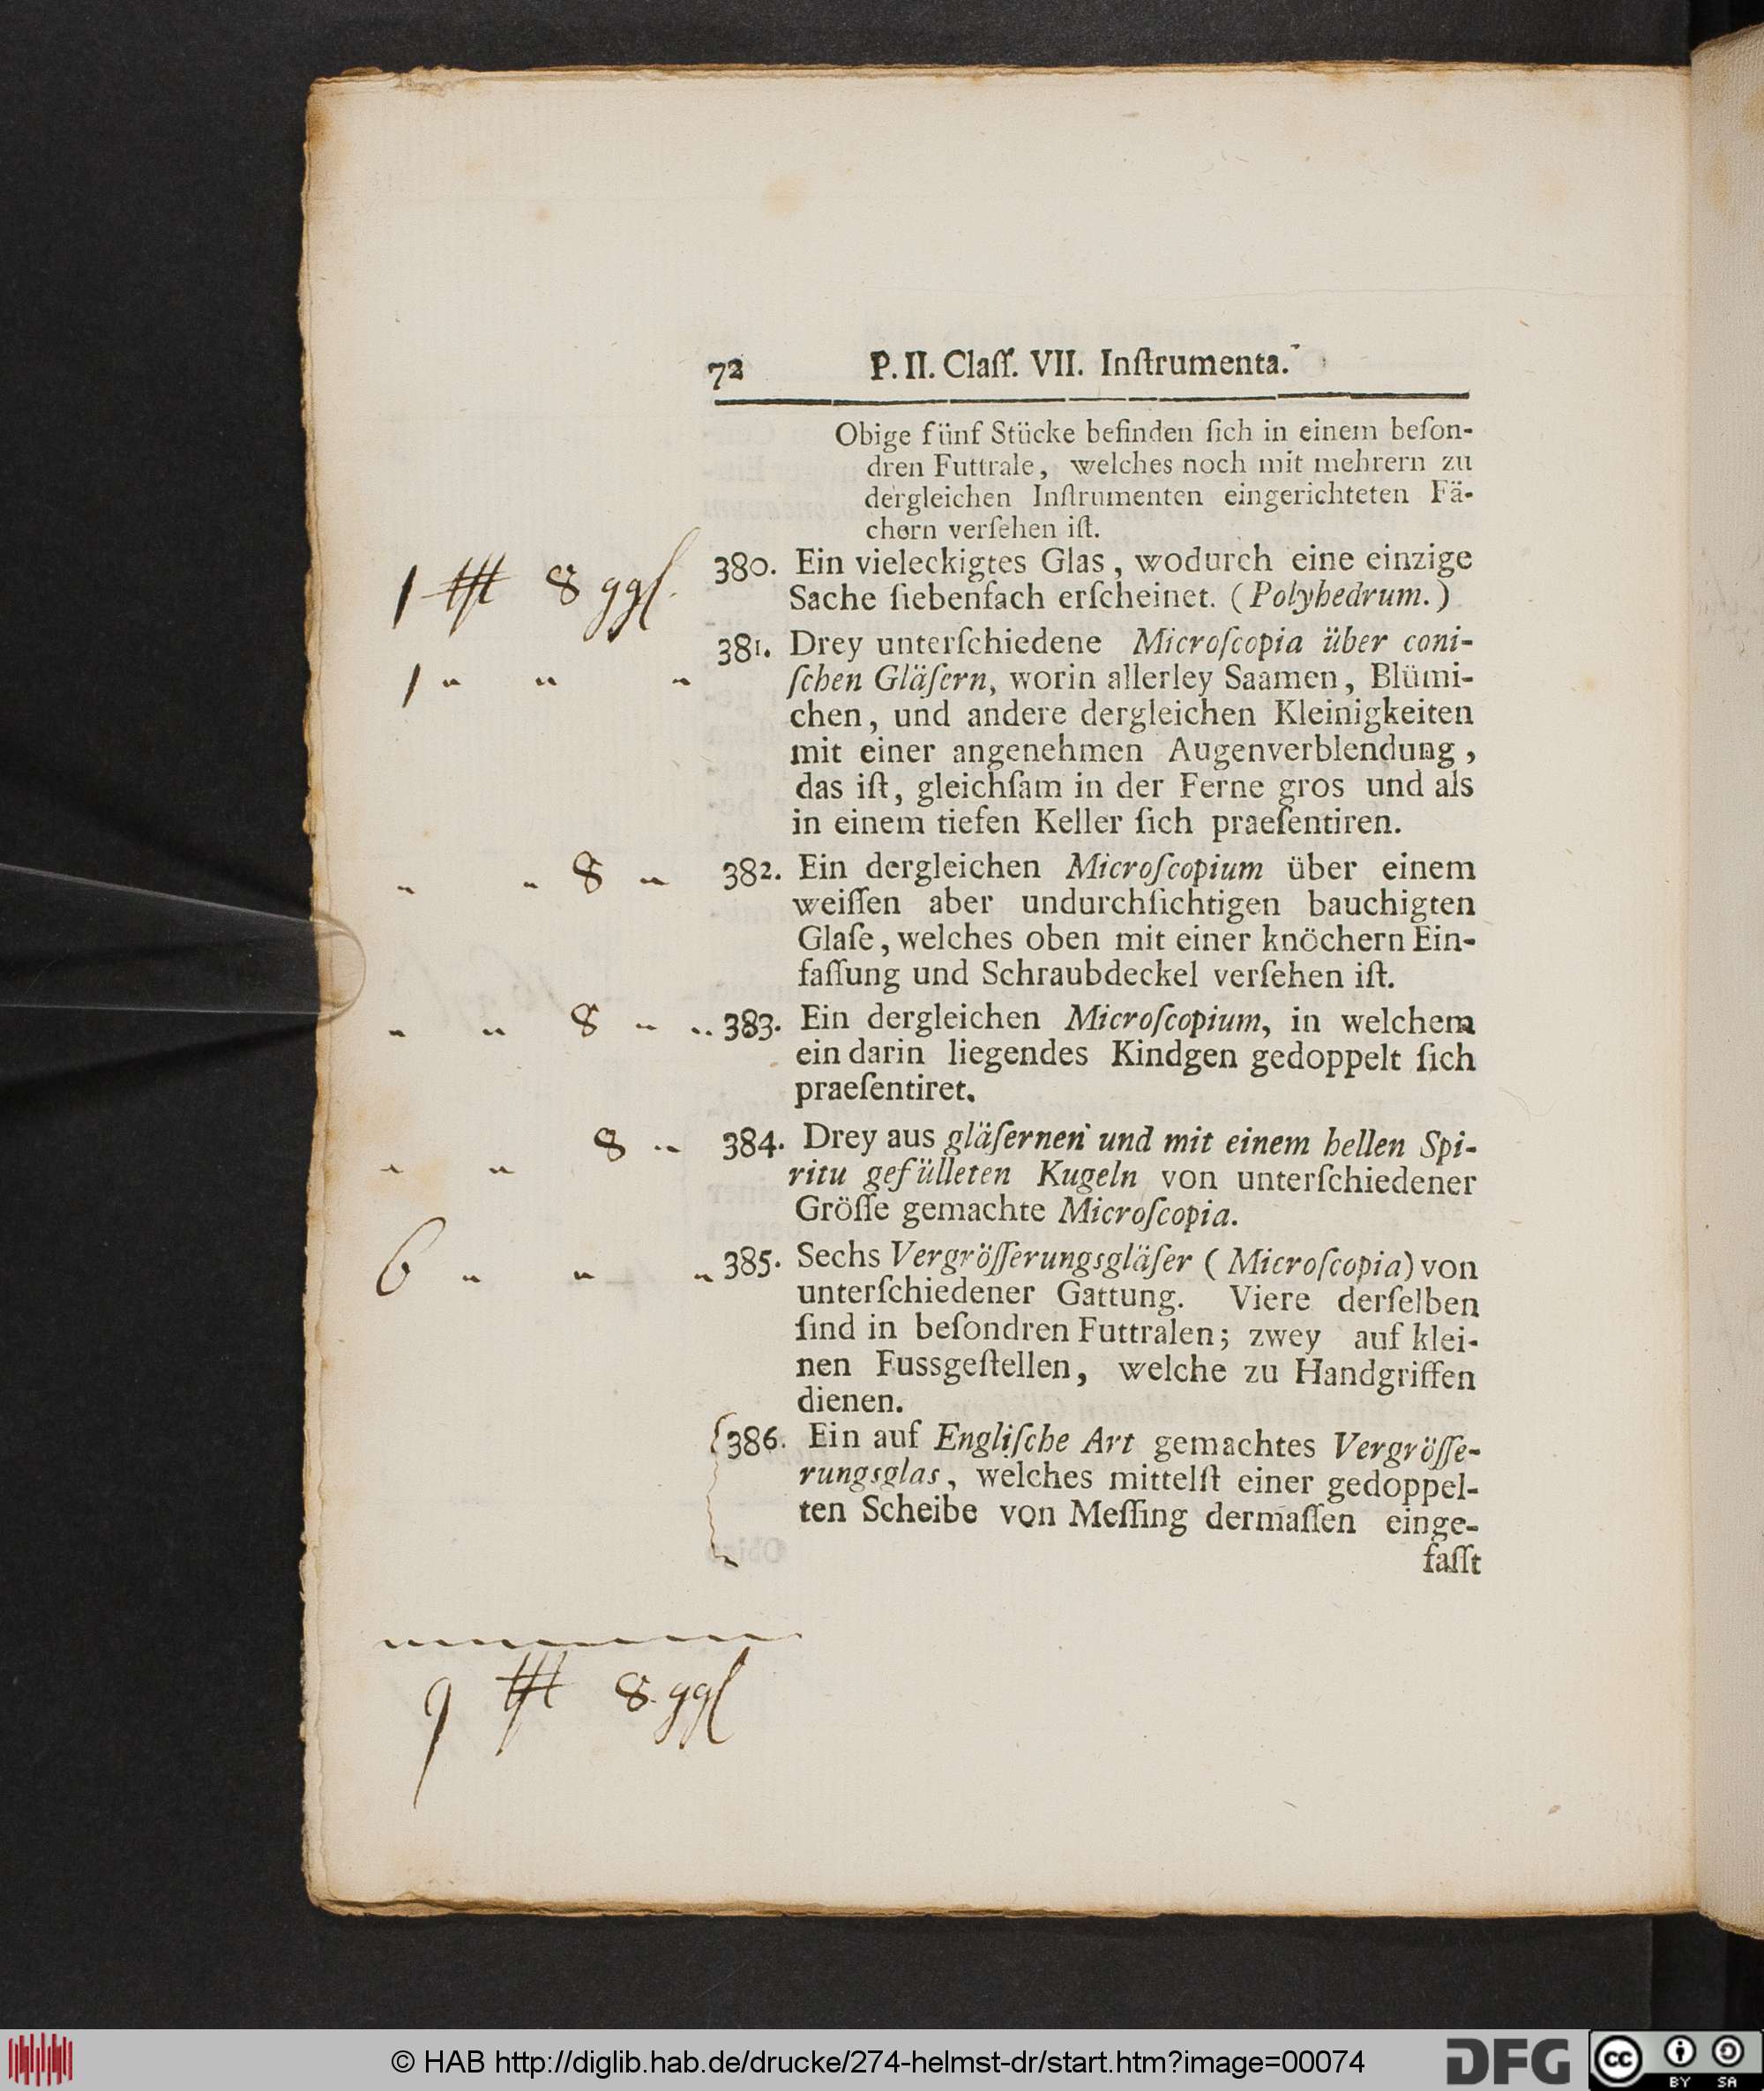 72 P. II. Claſſ. VII. Inſtrumenta.
Obige fünf Stücke befinden ſich in einem beſon-
dren Futtrale, welches noch mit mehrern zu
dergleichen Inſtrumenten eingerichteten Fä-
chern verſehen iſt.
380. Ein vieleckigtes Glas, wodurch eine einzige
1 8 ggl.
Sache ſiebenfach erſcheinet. (Polyhedrum.)
381. Drey unterſchiedene Microſcopia über coni-
1 " " "
ſchen Gläſern, worin allerley Saamen, Blümi-
chen, und andere dergleichen Kleinigkeiten
mit einer angenehmen Augenverblendung,
das iſt, gleichſam in der Ferne gros und als
in einem tiefen Keller ſich praeſentiren.
" " 8 " 382. Ein dergleichen Microſcopium über einem
weiſſen aber undurchſichtigen bauchigten
Glaſe, welches oben mit einer knöchern Ein-
faſſung und Schraubdeckel verſehen iſt.
" " 8 " " 383. Ein dergleichen Microſcopium, in welchem
ein darin liegendes Kindgen gedoppelt ſich
praeſentiret.
" " 8 " 384. Drey aus gläſernen und mit einem hellen Spi-
ritu gefülleten Kugeln von unterſchiedener
Gröſſe gemachte Microſcopia.
6 " " " 385. Sechs Vergröſſerungsgläſer (Microſcopia) von
unterſchiedener Gattung. Viere derſelben
ſind in beſondren Futtralen; zwey auf klei-
nen Fussgeſtellen, welche zu Handgriffen
dienen.
386. Ein auf Engliſche Art gemachtes Vergröſſe-
rungsglas, welches mittelſt einer gedoppel-
ten Scheibe von Meſſing dermaſſen einge-
faſſt
9 8 ggl
© HAB http://diglib.hab.de/drucke/274-helmst-dr/start.htm?image=00074
DFG
cc BY SA